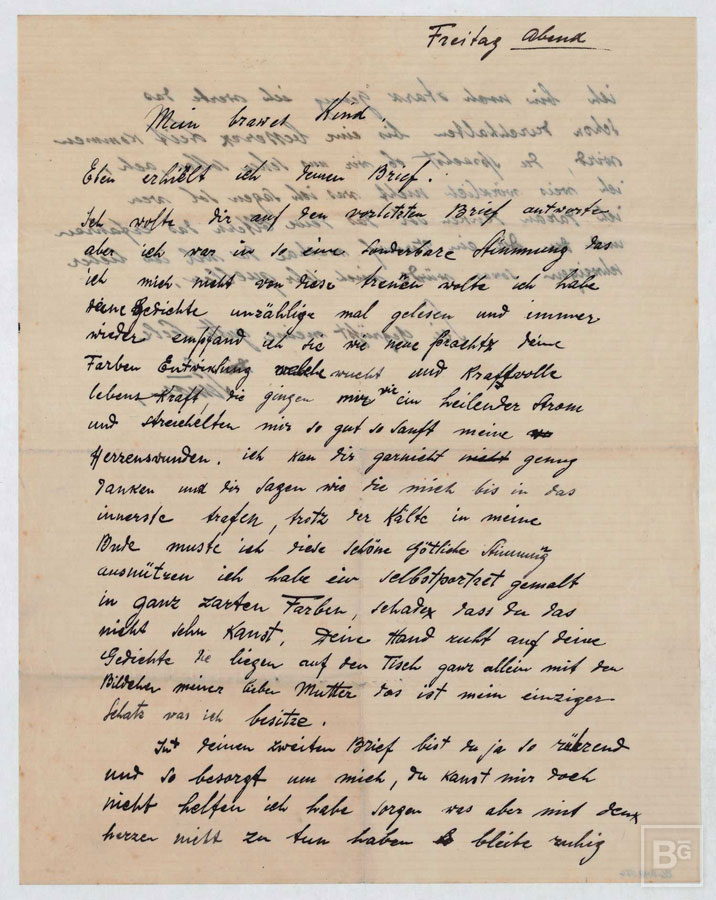 Freitag Abend
Mein braves Kind.
Eben erhielt ich deinen Brief.
Ich wolte dir auf den vorletzten Brief antworte
aber ich war in so eine sonderbare Stimmung das
ich mich nicht von diese trenen wolte ich habe
deine Gedichte unzählige mal gelesen und immer
wieder empfand ich sie wie neue pracht deine
Farben Entwicklung wucht und Kraftvolle
lebens Kraft, die gingen mir wie ein heilender Strom
und streichelten mir so gut so sanft meine
Herzenswunden. ich kan dir garnicht genug
danken und dir sagen wie die mich bis in das
innerste trafen, trotz der Kälte in meine
Bude muste ich diese schöne Götliche Stimmung
ausnützen ich habe ein selbstportraet gemalt
in ganz zarten Farben, schade dass du das
nicht sehn kanst, Deine Hand ruht auf deine
Gedichte die liegen auf den Tisch ganz allein mit den
Bildchen meiner lieben Mutter das ist mein einziger
Schatz was ich besitze.
deinen zweiten Brief bist du ja so rührend
und so besorgt um mich, du kanst mir doch
nicht helfen ich habe sorgen was aber mit dem
herzen nicht zu tun haben bleibe ruhig
BG